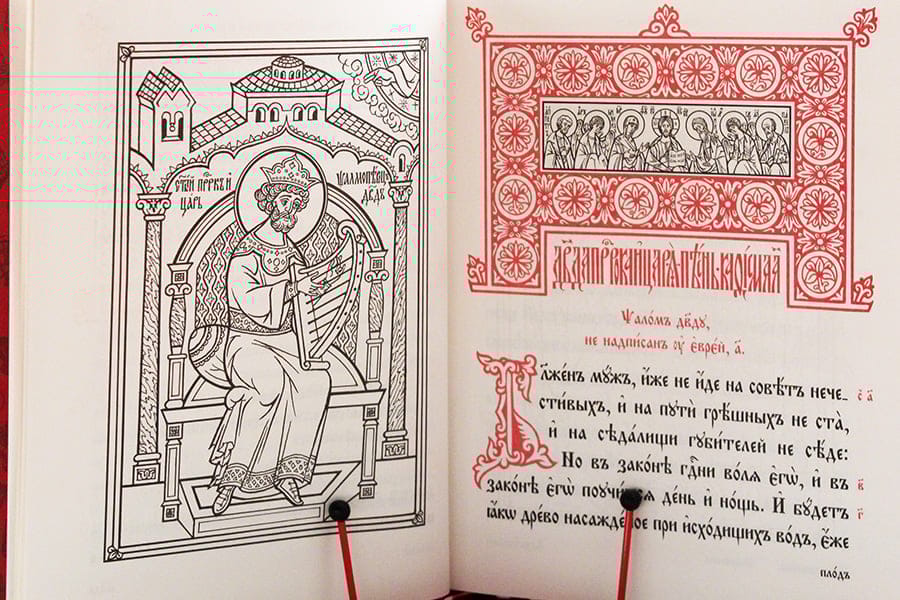 ст҃ы́й прⷪ҇ро́къ и҆
ца́рь
ѱалмопѣ́вецъ
дв҃дъ
дв҃да прⷪ҇ро́ка и҆ царѧ̀ пѣ́снь. каѳі́сма а҃
Ѱало́мъ дв҃ду,
не надпи́санъ ᲂу҆ є҆вре́й, а҃.
Бл҃же́нъ мꙋ́жъ, и҆́же не и҆́де на совѣ́тъ нече- є҃ а҃
сти́выхъ, и҆ на пꙋтѝ грѣ́шныхъ не ста̀,
и҆ на сѣда́лищи гꙋби́телей не сѣ́де:
Но въ зако́нѣ гдⷭ҇ни во́лѧ є҆гѡ̀, и҆ въ в҃
зако́нѣ є҆гѡ̀ поꙋчи́тсѧ де́нь и҆ но́щь. И҆ бꙋ́детъ г҃
ꙗ҆́кѡ дре́во насажде́ное при и҆схо́дищихъ во́дъ, є҆́же
пло́дъ